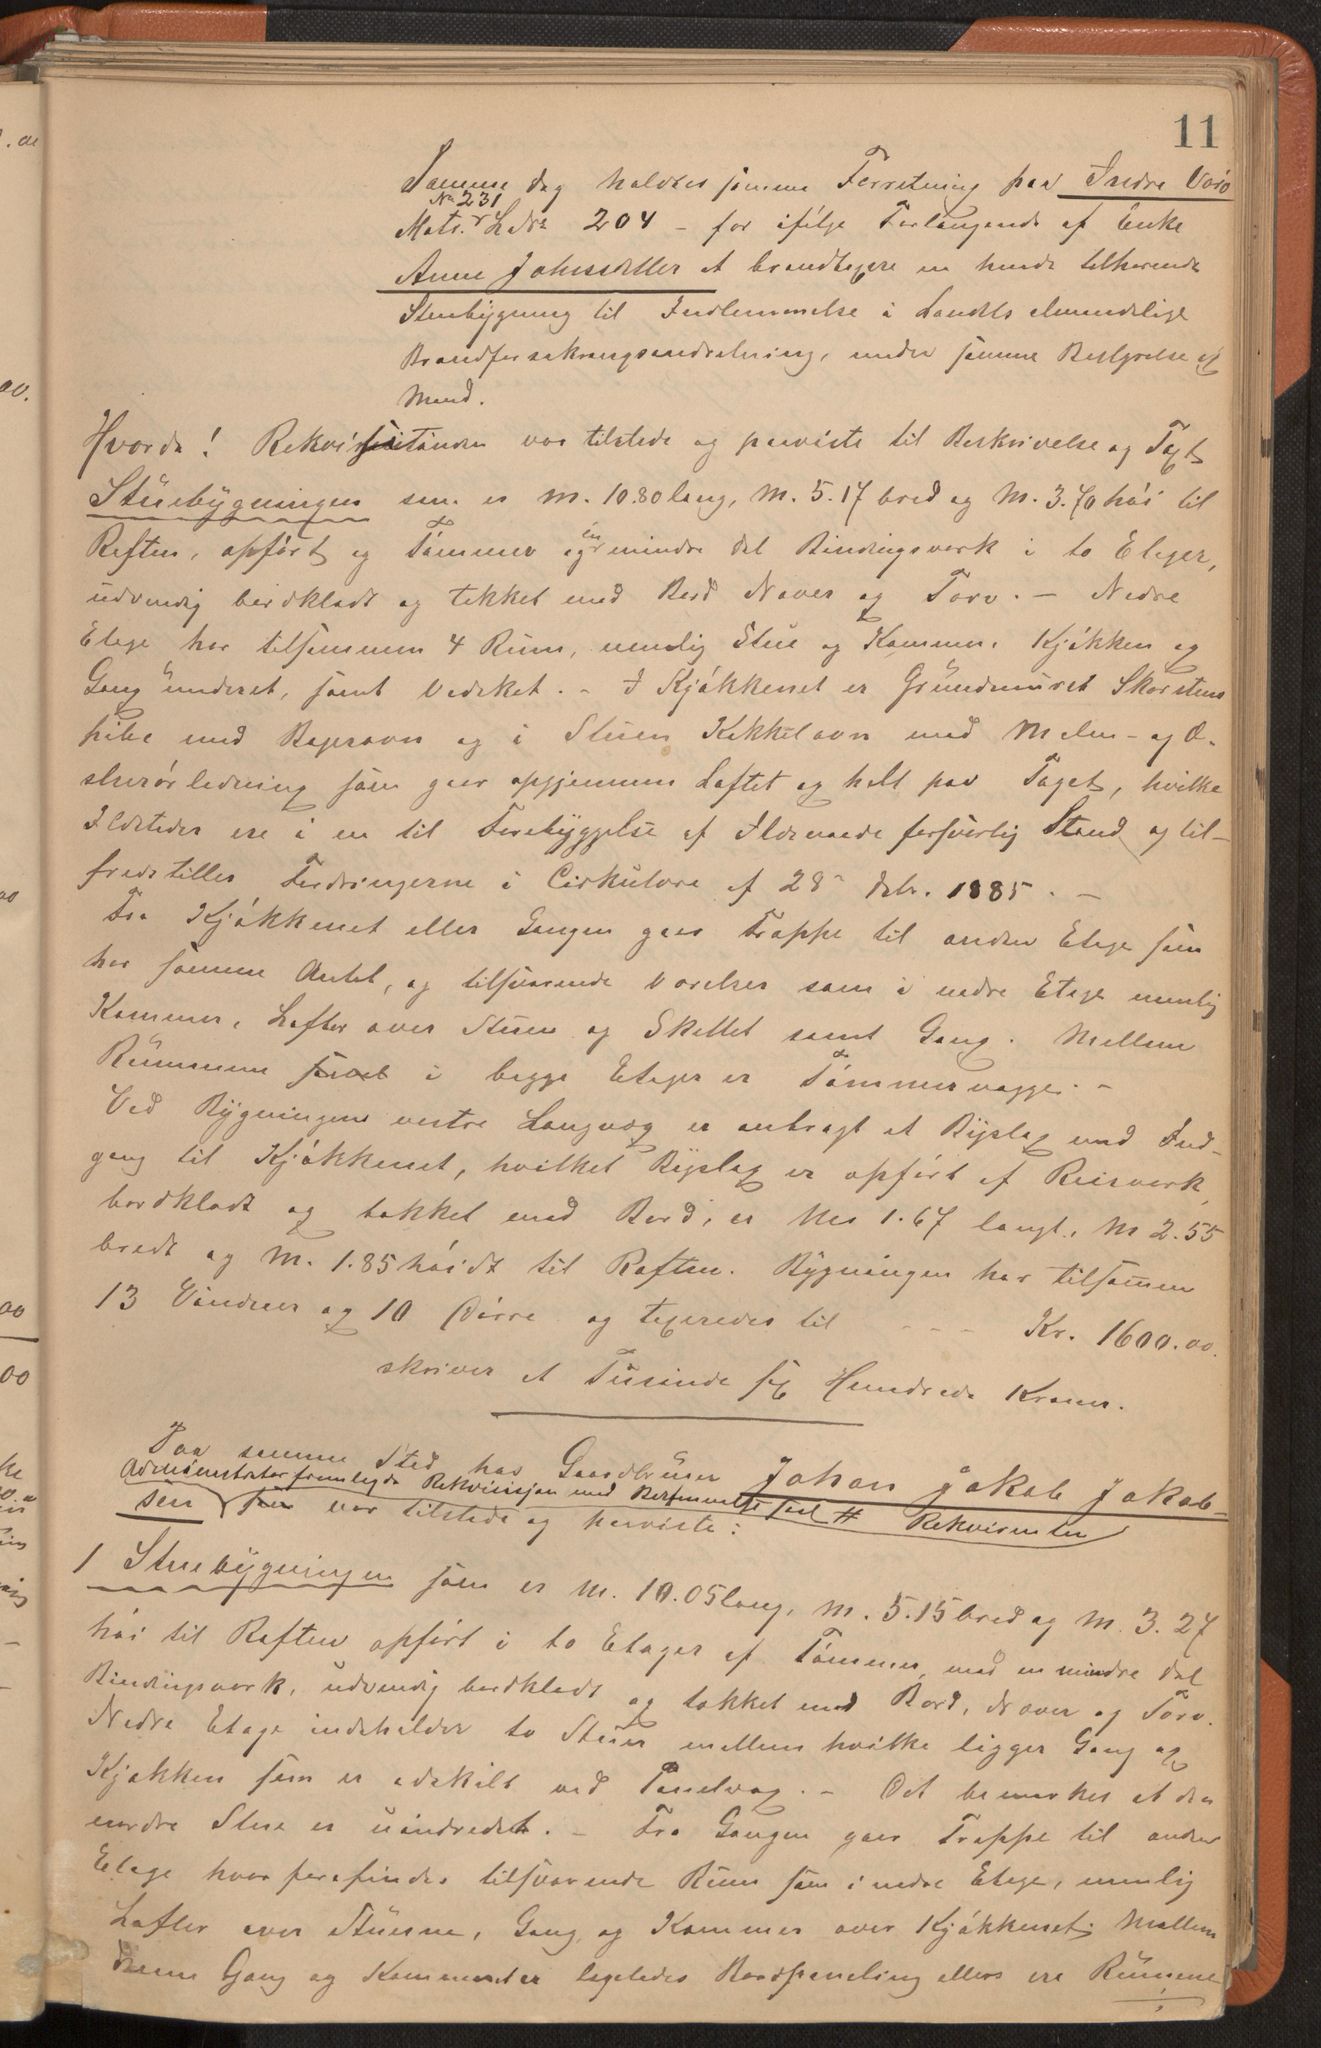 11
Samme Dag holdtes samme Forretning paa Indre Varö
No 231
Matr. Lno 204 – for ifölge Forlangende af Enke
Anne Johnsdatter at brandtaxere en hende tilhørende
Stuebygning til Indlemmelse i Landets almindelige
Brandforsikringsindretning, under samme Bestyrelse og
Mænd.
Hvorda! Rekvirentinden var tilstede og paaviste til Beskrivelse og Taxt
Stuebygningen som er M. 10.80 lang, M. 5.17 bred og M. 3.70 höi til
Raften, opfört af Tömmer og en mindre del Bindingsverk i to Etager,
udvendig bordklædt og tækket med Bord Næver og Torv. – Nedre
Etage har tilsammen 4 Rum, nemlig Stue og Kammer, Kjökken og
Gang underet, samt Vedsket. – I Kjökkenet er Grundmuret Skorstens
pibe med Bagerovn og i Stuen Kakkelovn med Malm- og
ledning som gaar opgjennem Loftet og helt paa Taget, hvilke
Ildsteder ere i en til Forebyggelse af Ildsvaade forsvarlig Stand og til-
fredstiller Fordringerne i Cirkulære af 28de Debr. 1885. –
Fra Kjökkenet eller Gangen gaar Trappe til anden Etage som
har samme Antal, og tilsvarende Værelser som i nedre Etage nemlig
Kammer, Lofter over Stuen og Skellet samt Gang. Mellem
Rummene i begge Etager er Tömmervægge. –
Ved Bygningens vestre Langvæg er anbragt et Byslag med Ind-
gang til Kjökkenet, hvilket Byslag er opfört af Reisverk,
bordklædt og tækket med Bord, er Mer 1.67 langt, M 2.55
bredt og M. 1.85 höidt til Raften. Bygningen har tilsammen
13 Vinduer og 10 Dörre og taxeredes til – – – Kr. 1600.00.
skriver et Tusinde sex Hundrede Kroner.
Paa samme Sted hos Gaardbruger Johan Jakob Jakob-
Administrator fremlagde Rekvisisjon med Berammelse # Rekvirenten
sen som var tilstede og paaviste:
1 Stuebygningen som er M. 10.05 lang, M. 5.15 bred og M. 3.27
höi til Raften opfört i to Etager af Tömmer, med en mindre del
Bindingsverk, udvendig bordklædt og tækket med Bord, Næver og Torv.
Nedre Etage indeholder to Stuer mellem hvilke ligger Gang og
Kjökken som er adskilt ved Panelvæg. – Det bemærkes at den
nordre Stue er uindredet. – Fra Gangen gaar Trappe til anden
Etage hvor forefindes tilsvarende Rum som i nedre Etage, nemlig
Lofter over Stuerne, Gang og Kammer over Kjökkenet; Mellem
denne Gang og Kammeret er ligeledes Bordpaneling ellers ere Rummene